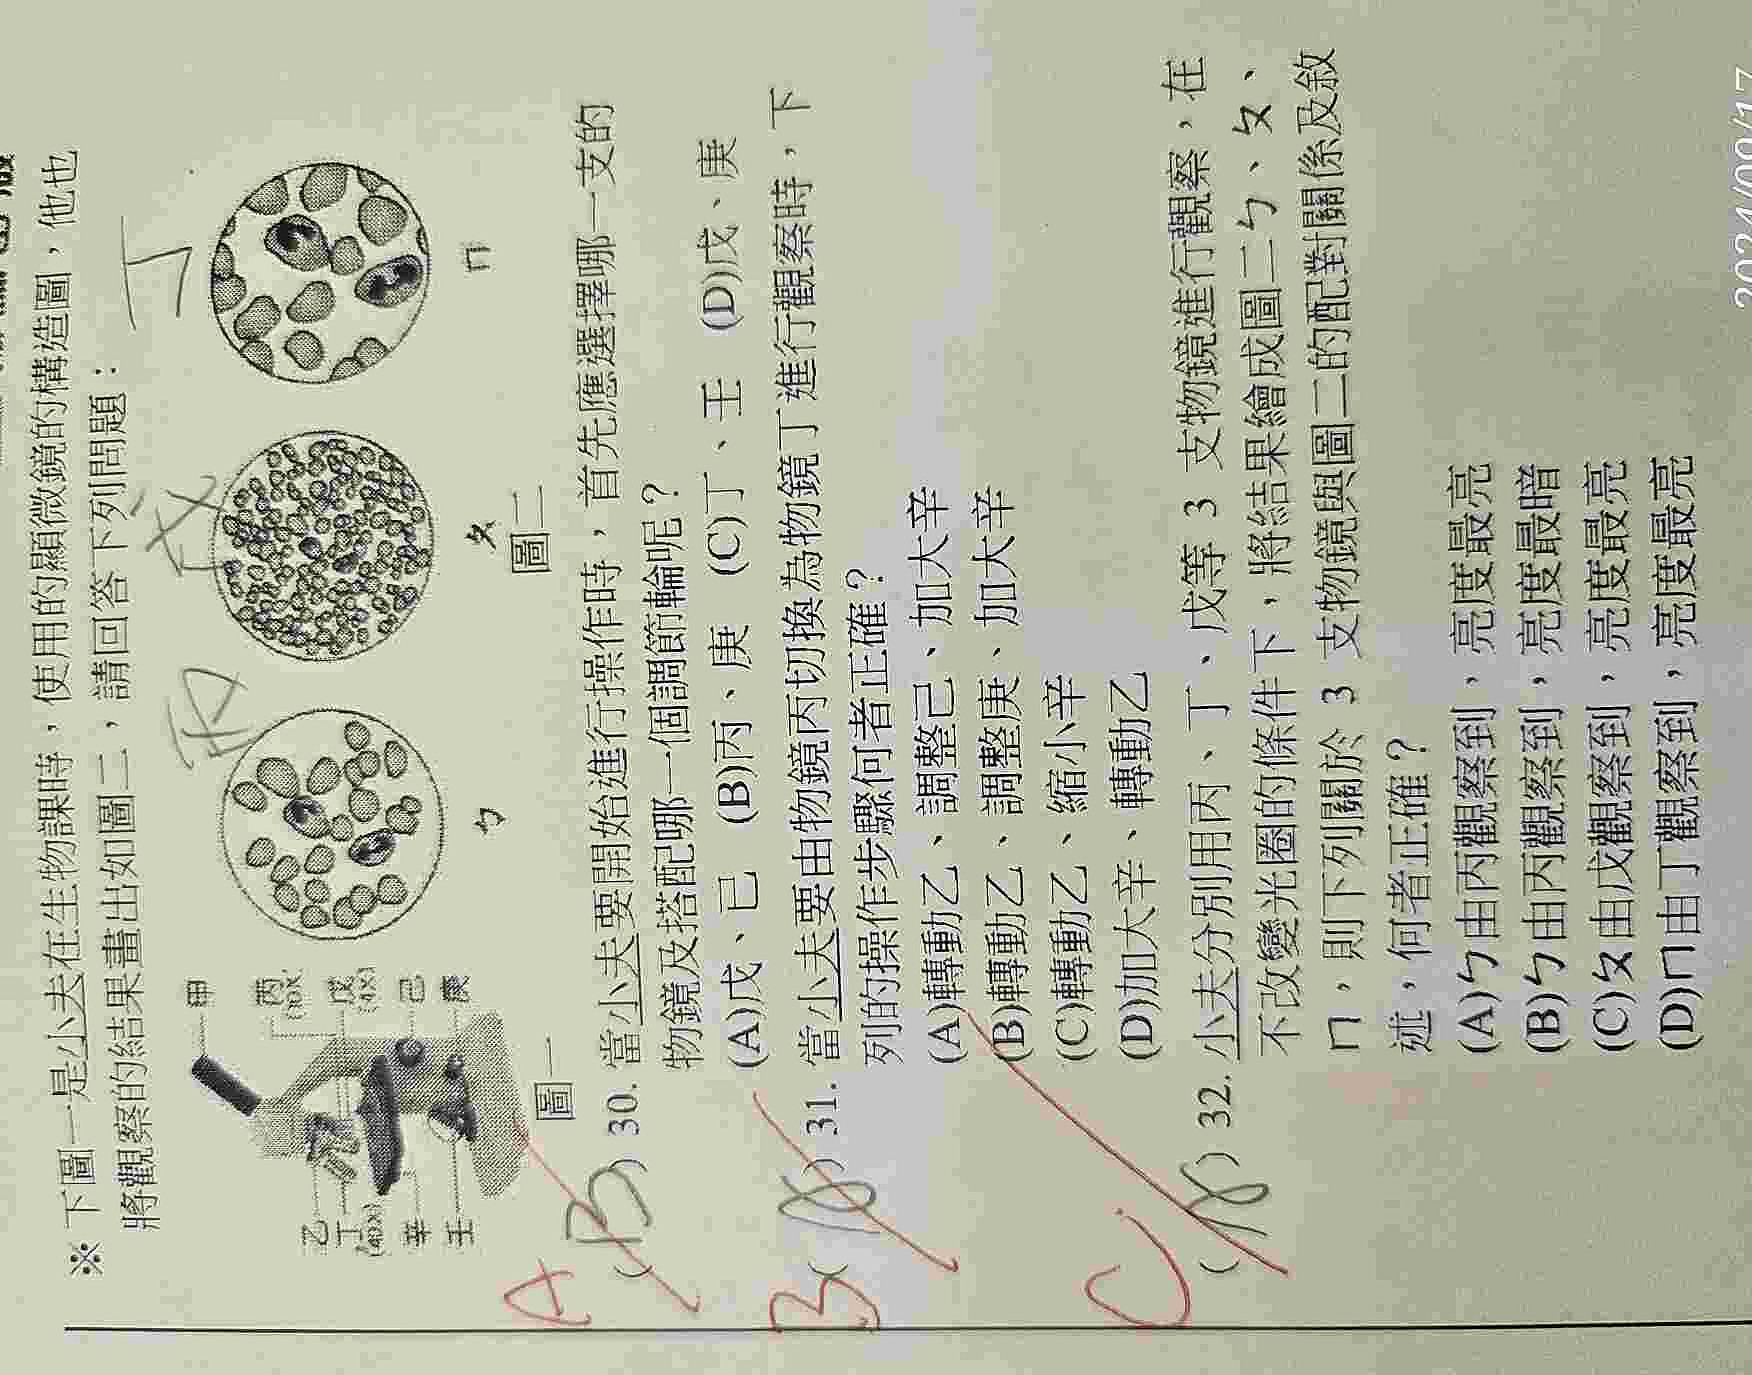 ※ 下圖一是小夫在生物課時，使用的顯微鏡的構造圖，他也
將觀察的結果畫出如圖二，請回答下列問題：
甲
丙
(10X)
戊
(4X)
己
庚
乙
丁
(40X)
辛
壬
圖一
丙
戊
丁
ㄅ
ㄆ
ㄇ
圖二
A
(B) 30. 當小夫要開始進行操作時，首先應選擇哪一支的
物鏡及搭配哪一個調節輪呢？
(A)戊、己 (B)丙、庚 (C)丁、壬 (D)戊、庚
B
( ) 31. 當小夫要由物鏡丙切換為物鏡丁進行觀察時，下
列的操作步驟何者正確？
(A)轉動乙、調整己、加大辛
(B)轉動乙、調整庚、加大辛
(C)轉動乙、縮小辛
(D)加大辛、轉動乙
C
( ) 32. 小夫分別用丙、丁、戊等 3 支物鏡進行觀察，在
不改變光圈的條件下，將結果繪成圖二ㄅ、ㄆ、
ㄇ，則下列關於 3 支物鏡與圖二的配對關係及敘
述，何者正確？
(A)ㄅ由丙觀察到，亮度最亮
(B)ㄅ由丙觀察到，亮度最暗
(C)ㄆ由戊觀察到，亮度最亮
(D)ㄇ由丁觀察到，亮度最亮
2024/09/17